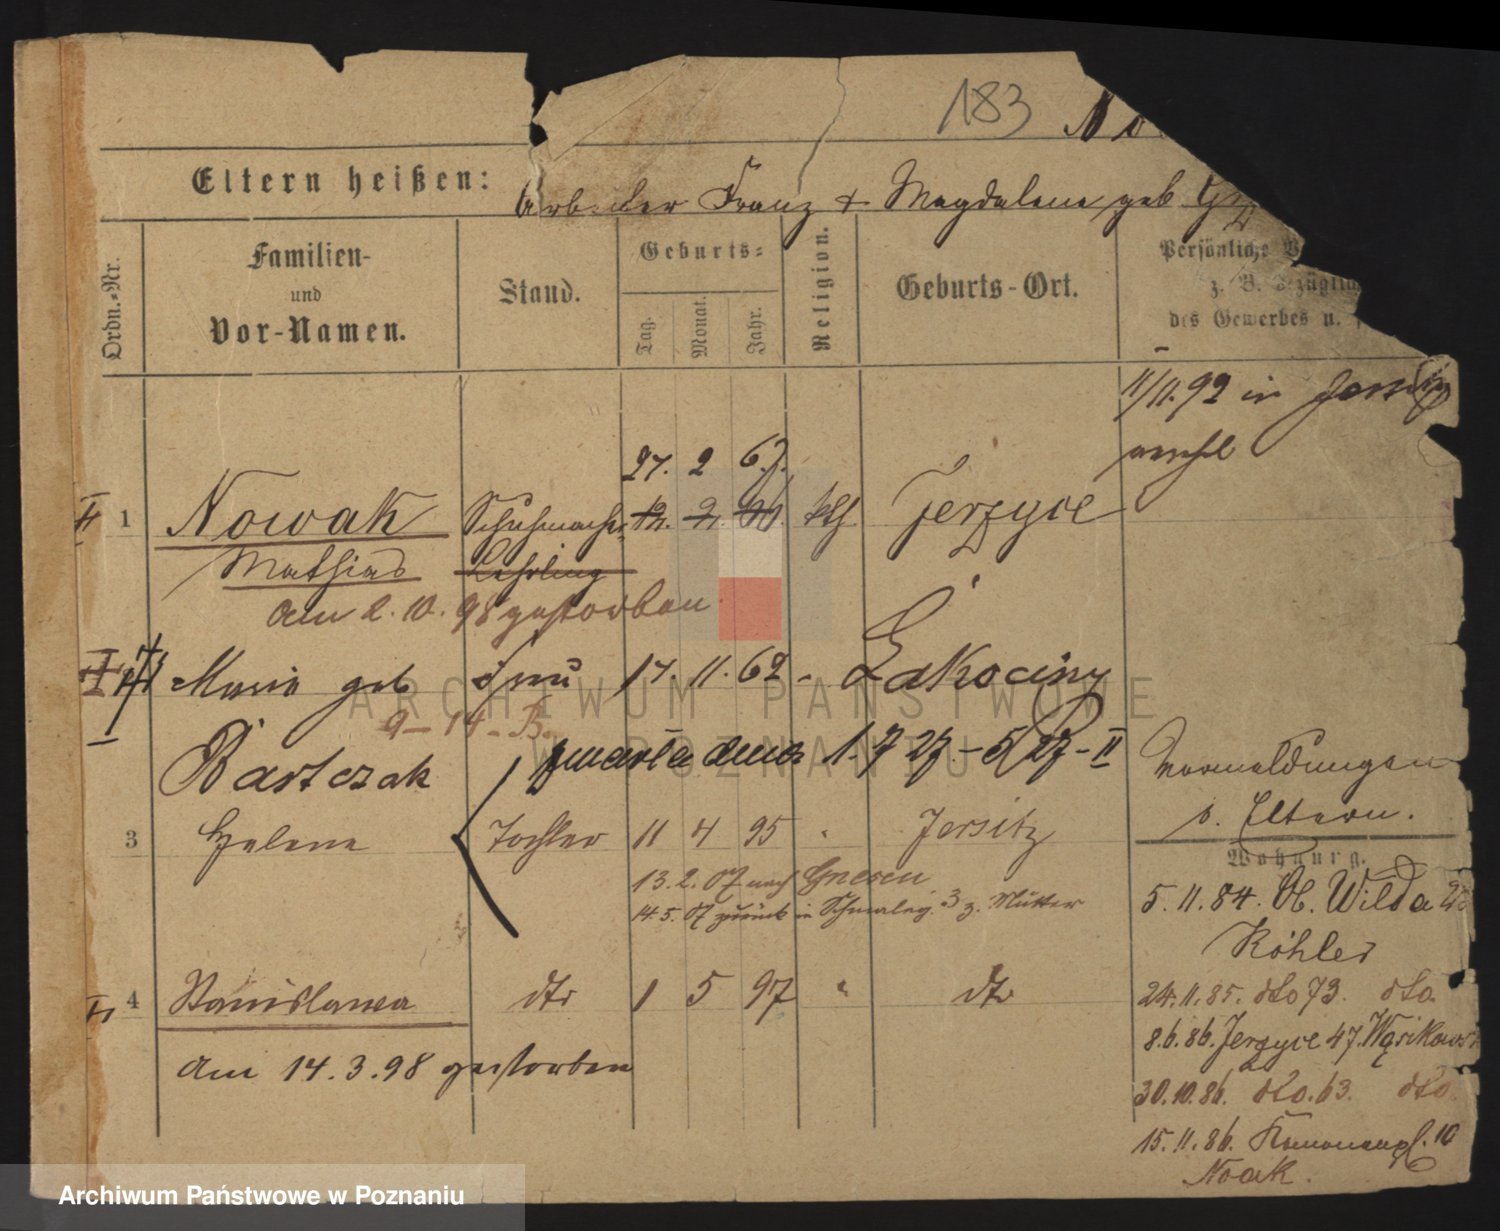 183 No
Eltern heißen: Arbeiter Franz + Magdalena geb
Ordn.-Nr.
Familien-
und
Vor-Namen.
Stand.
Geburts-
Tag. Monat. Jahr.
Religion.
Geburts-Ort.
Persönliche
z. B. Bezüglich
des Gewerbes u.
11/11.92 in Jersitz
27. 2 67.
II 1 Nowak Schuhmacher 12. 2. kth. Jerzyce
Mathias Lehrling
am 2.10.98 gestorben
Maria geb Frau 17. 11. 62 - Łakociny
9-14-B.
Bartczak zmarła dnia 1.7 27.-5/27-II
3 Helene Tochter 11 4 95 " Jersitz
13.2.07 nach Gnesen
14.5.07 zurück in Schmaleg. 3 z. Mutter
II 4 Stanislawa dto 1 5 97 " dto
am 14.3.98 gestorben
Vormeldungen
s. Eltern.
Wohnung.
5.11.84. Ob. Wilda
Köhler
24.11.85. dto 73. dto.
8.6.86. Jerzyce 47. Wąsikows
30.10.86. dto. 63. dto.
15.11.86. Kanonenpl. 10
Noak.
ARCHIWUM PAŃSTWOWE
W POZNANIU
Archiwum Państwowe w Poznaniu